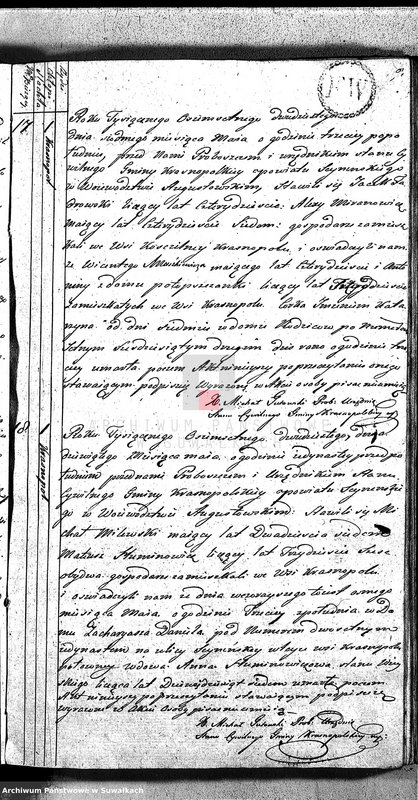 17.
Krasnopol
Roku Tysiącznego Osiemsetnego dwudziestego
dnia siodmego miesiąca Maia o godzinie trzeciey popo
łudniu, przed Nami Proboszczem i urzędnikiem stanu Cy
wilnego Gminy Krasnopolskiey w powiecie Seyneńskiego
w Woiewodztwie Augustowskim, stawili się Jacek Da
browski liczący lat Czterdzieście; Alexy Miranowicz
maiący lat Czterdzieście Siedem; gospodarze zamiesz
kali we Wsi Koscielney Krasnopolu, i oswiadczyli nam,
że Wicentego maiącego lat Czterdzieście i Anto
niny z domu liczący lat
zamieszkałych we Wsi Krasnopolu. Corka Imieniem Kata
rzyna od dni Siedmiu w domu Rodziców pod Numerem
Jednym Siedziesiątym drugim dziś rano o godzinie trze
ciey umarła, poczem Akt ninieyszy po przeczytaniu onego
stawaiącym podpisuię Wyrażone w Akcie osoby pisać nieumieią
X. Michał Prob: Urzędnik
Stanu Cywilnego Gminy Krasnopolskiey
18.
Krasnopol
Roku Tysiącznego Osiemsetnego, dwudziestego, dnia
dziewiątego Miesiąca Maia, o godzinie iedynastey przed po
łudniem przed nami Proboszczem i Urzędnikiem Stanu
Cywilnego Gminy Krasnopolskiey w powiecie Seyneńskie
go w Woiewodztwie Augustowskim: stawili się Mi
chał Milewski maiący lat Dwadzieścia siedem
Mateusz Huminowicz liczący lat Trzydzieście Sześć
obydwa gospodarze zamieszkali we Wsi Krasnopolu,
i oswiadczyli nam iż dnia wczorayszego toiest osmego
miesiąca Maia, o godzinie Trzeciey z południa w Do
mu Zacharyasza Daniła pod Numerem dwoistnym
iedynastem na ulicy Seyneńskey wteyże wsi Krasnopolu
położony wdowa Anna Huminowiczowa stanu Wiey
skiego licząca lat Dziewiędziesiąt siedem umarła, poczem
Akt ninieyszy po przeczytaniu stawaiącym podpisuię
wyrażone w Akcie Osoby pisać nieumieią
X. Michał Prob: Urzędnik
Stanu Cywilnego Gminy Krasnopolskiey
Archiwum Państwowe w Suwałkach